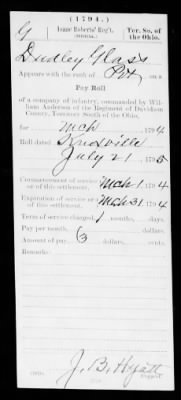 (1794.)
G Isaac Roberts' Reg't. Ter. So. of
(MILITIA.) the Ohio.
Dudley Glass
Appears with the rank of Pvt
Pay Roll
of a company of infantry, commanded by Wil-
liam Anderson of the Regiment of Davidson
County, Territory South of the Ohio,
for Mch 1794
Roll dated Knoxville
July 21 1795
Commencement of service
or of this settlement. Mch 1 1794
Expiration of service
or of this settlement. Mch 31 1794
Term of service charged 1 months, days.
Pay per month, dollars.
Amount of pay, 3 dollars, cents.
Remarks:
J. B. Hyatt
Copyist.